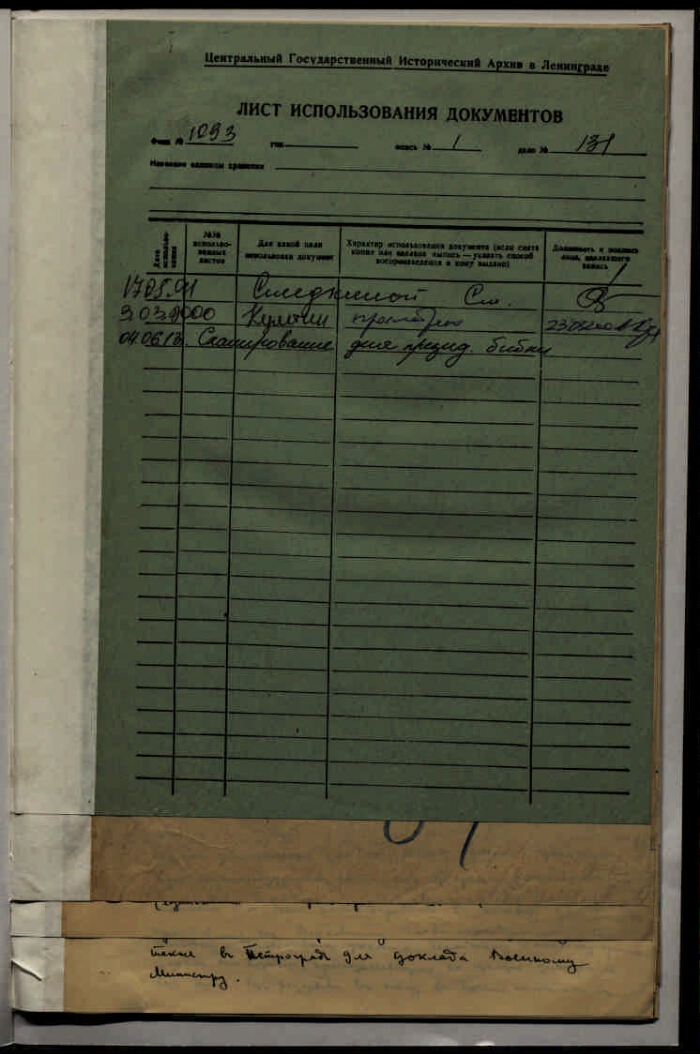 Центральный Государственный Исторический Архив в Ленинграде
ЛИСТ ИСПОЛЬЗОВАНИЯ ДОКУМЕНТОВ
Фонд № 1093 год опись № 1 дело № 131
Название единицы хранения
Дата использования
№№ использованных листов
Для какой цели использован документ
Характер использования документа (если снята копия или сделана выпись — указать способ воспроизведения и кому выдано)
Должность и подпись лица, сделавшего запись
17.05.91 См.
Кулегин просмотрено
04.06.13. Сканирование для презид. библ.
в Петроград для доклада Военному
Министру.